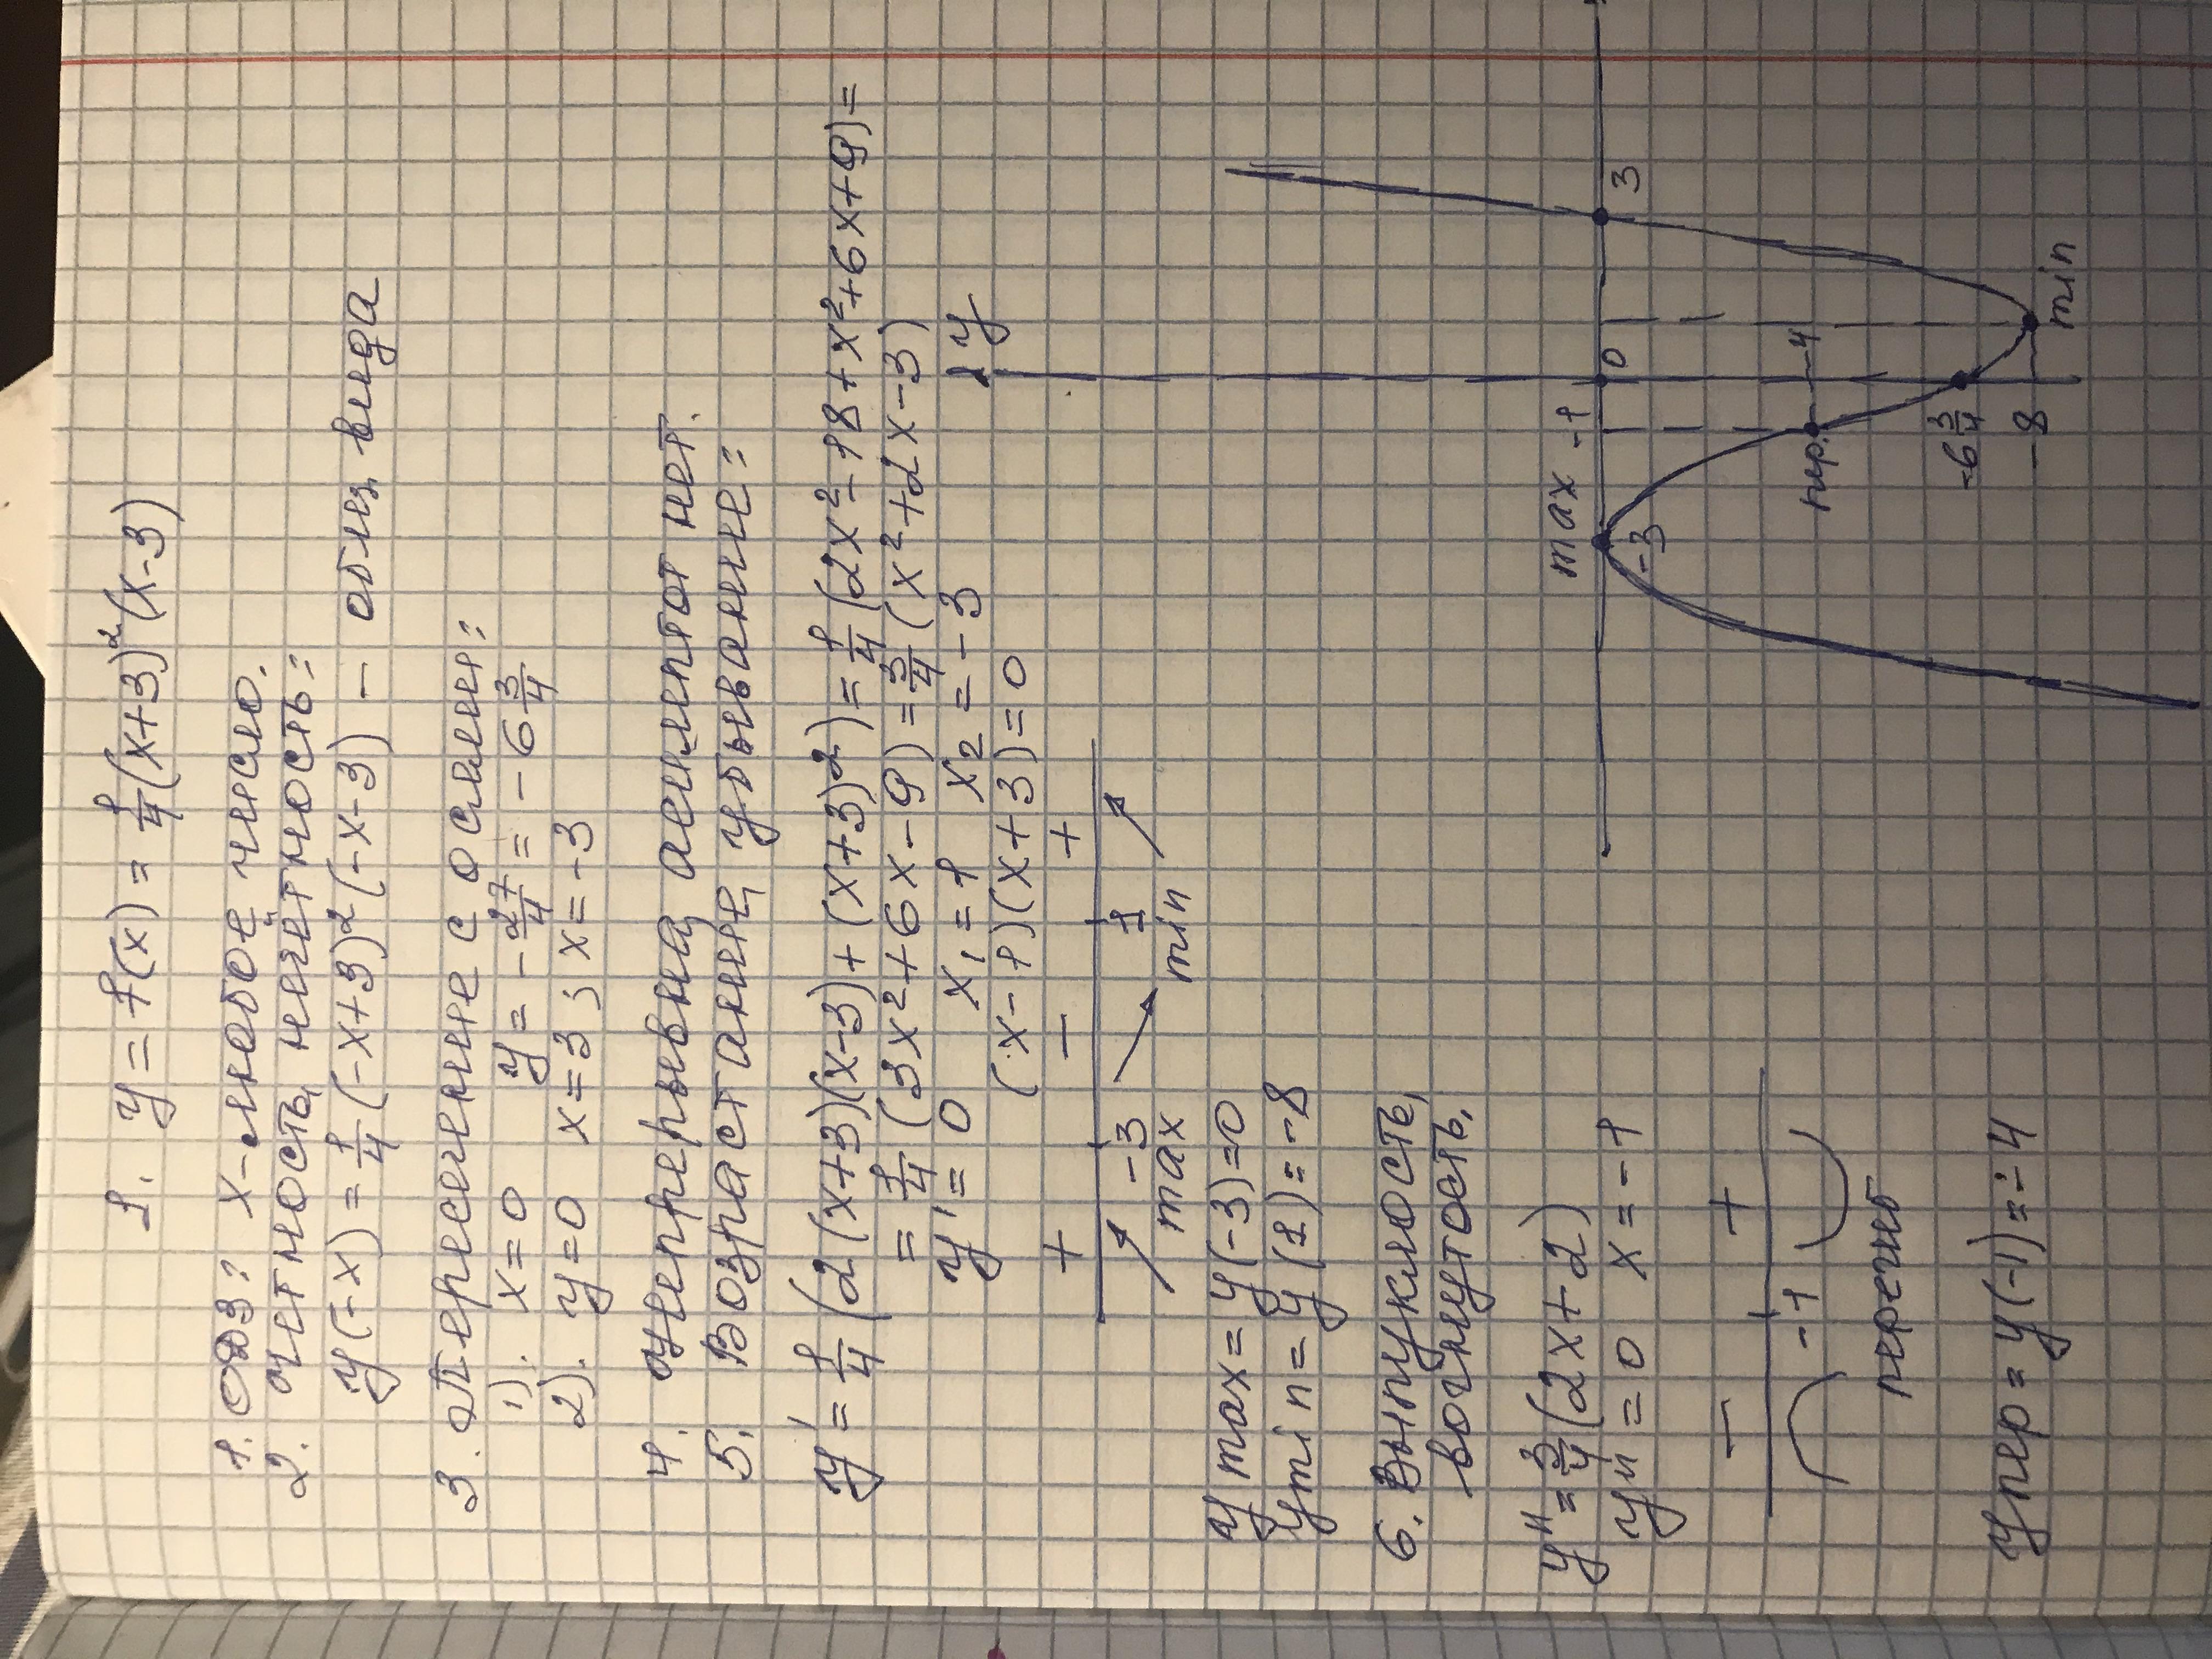 1. y = f(x) = 1/4 (x+3)²(x-3)
1. ОДЗ: x-любое число.
2. Чётность, нечётность:
y(-x) = 1/4 (-x+3)²(-x-3) - общ. вида
3. Пересечение с осями:
1). x=0 y = -27/4 = -6 3/4
2). y=0 x=3; x=-3
4. Непрерывна, асимптот нет.
5. Возрастание, убывание:
y' = 1/4 (2(x+3)(x-3)+(x+3)²) = 1/4 (2x²-18+x²+6x+9) =
= 1/4 (3x²+6x-9) = 3/4 (x²+2x-3)
y'=0 x₁=1 x₂=-3
(x-1)(x+3)=0
+ - +
-3 1
max min
y max = y(-3)=0
y min = y(1)=-8
6. Выпуклость,
вогнутость.
y" = 3/4 (2x+2)
y"=0 x=-1
- +
-1
перегиб
y пер = y(-1) = -4
y
max -1 0 3
-3
пер. -4
-6 3/4
-8
min